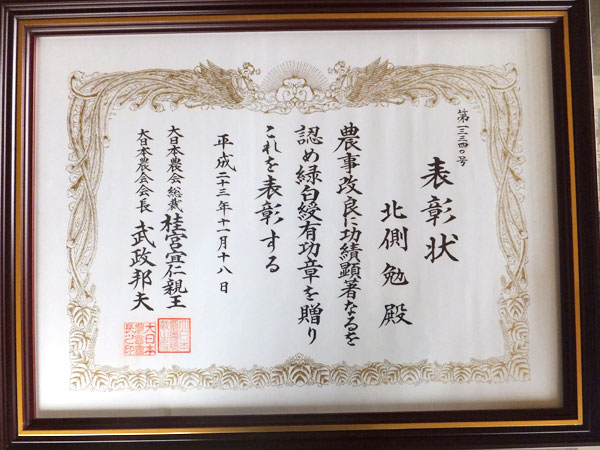 第一三三四〇号
表彰状
北側勉殿
農事改良に功績顕著なるを
認め緑白綬有功章を贈り
これを表彰する
平成二十三年十一月十八日
大日本農会総裁 桂宮宜仁親王
大日本農会会長 武政邦夫